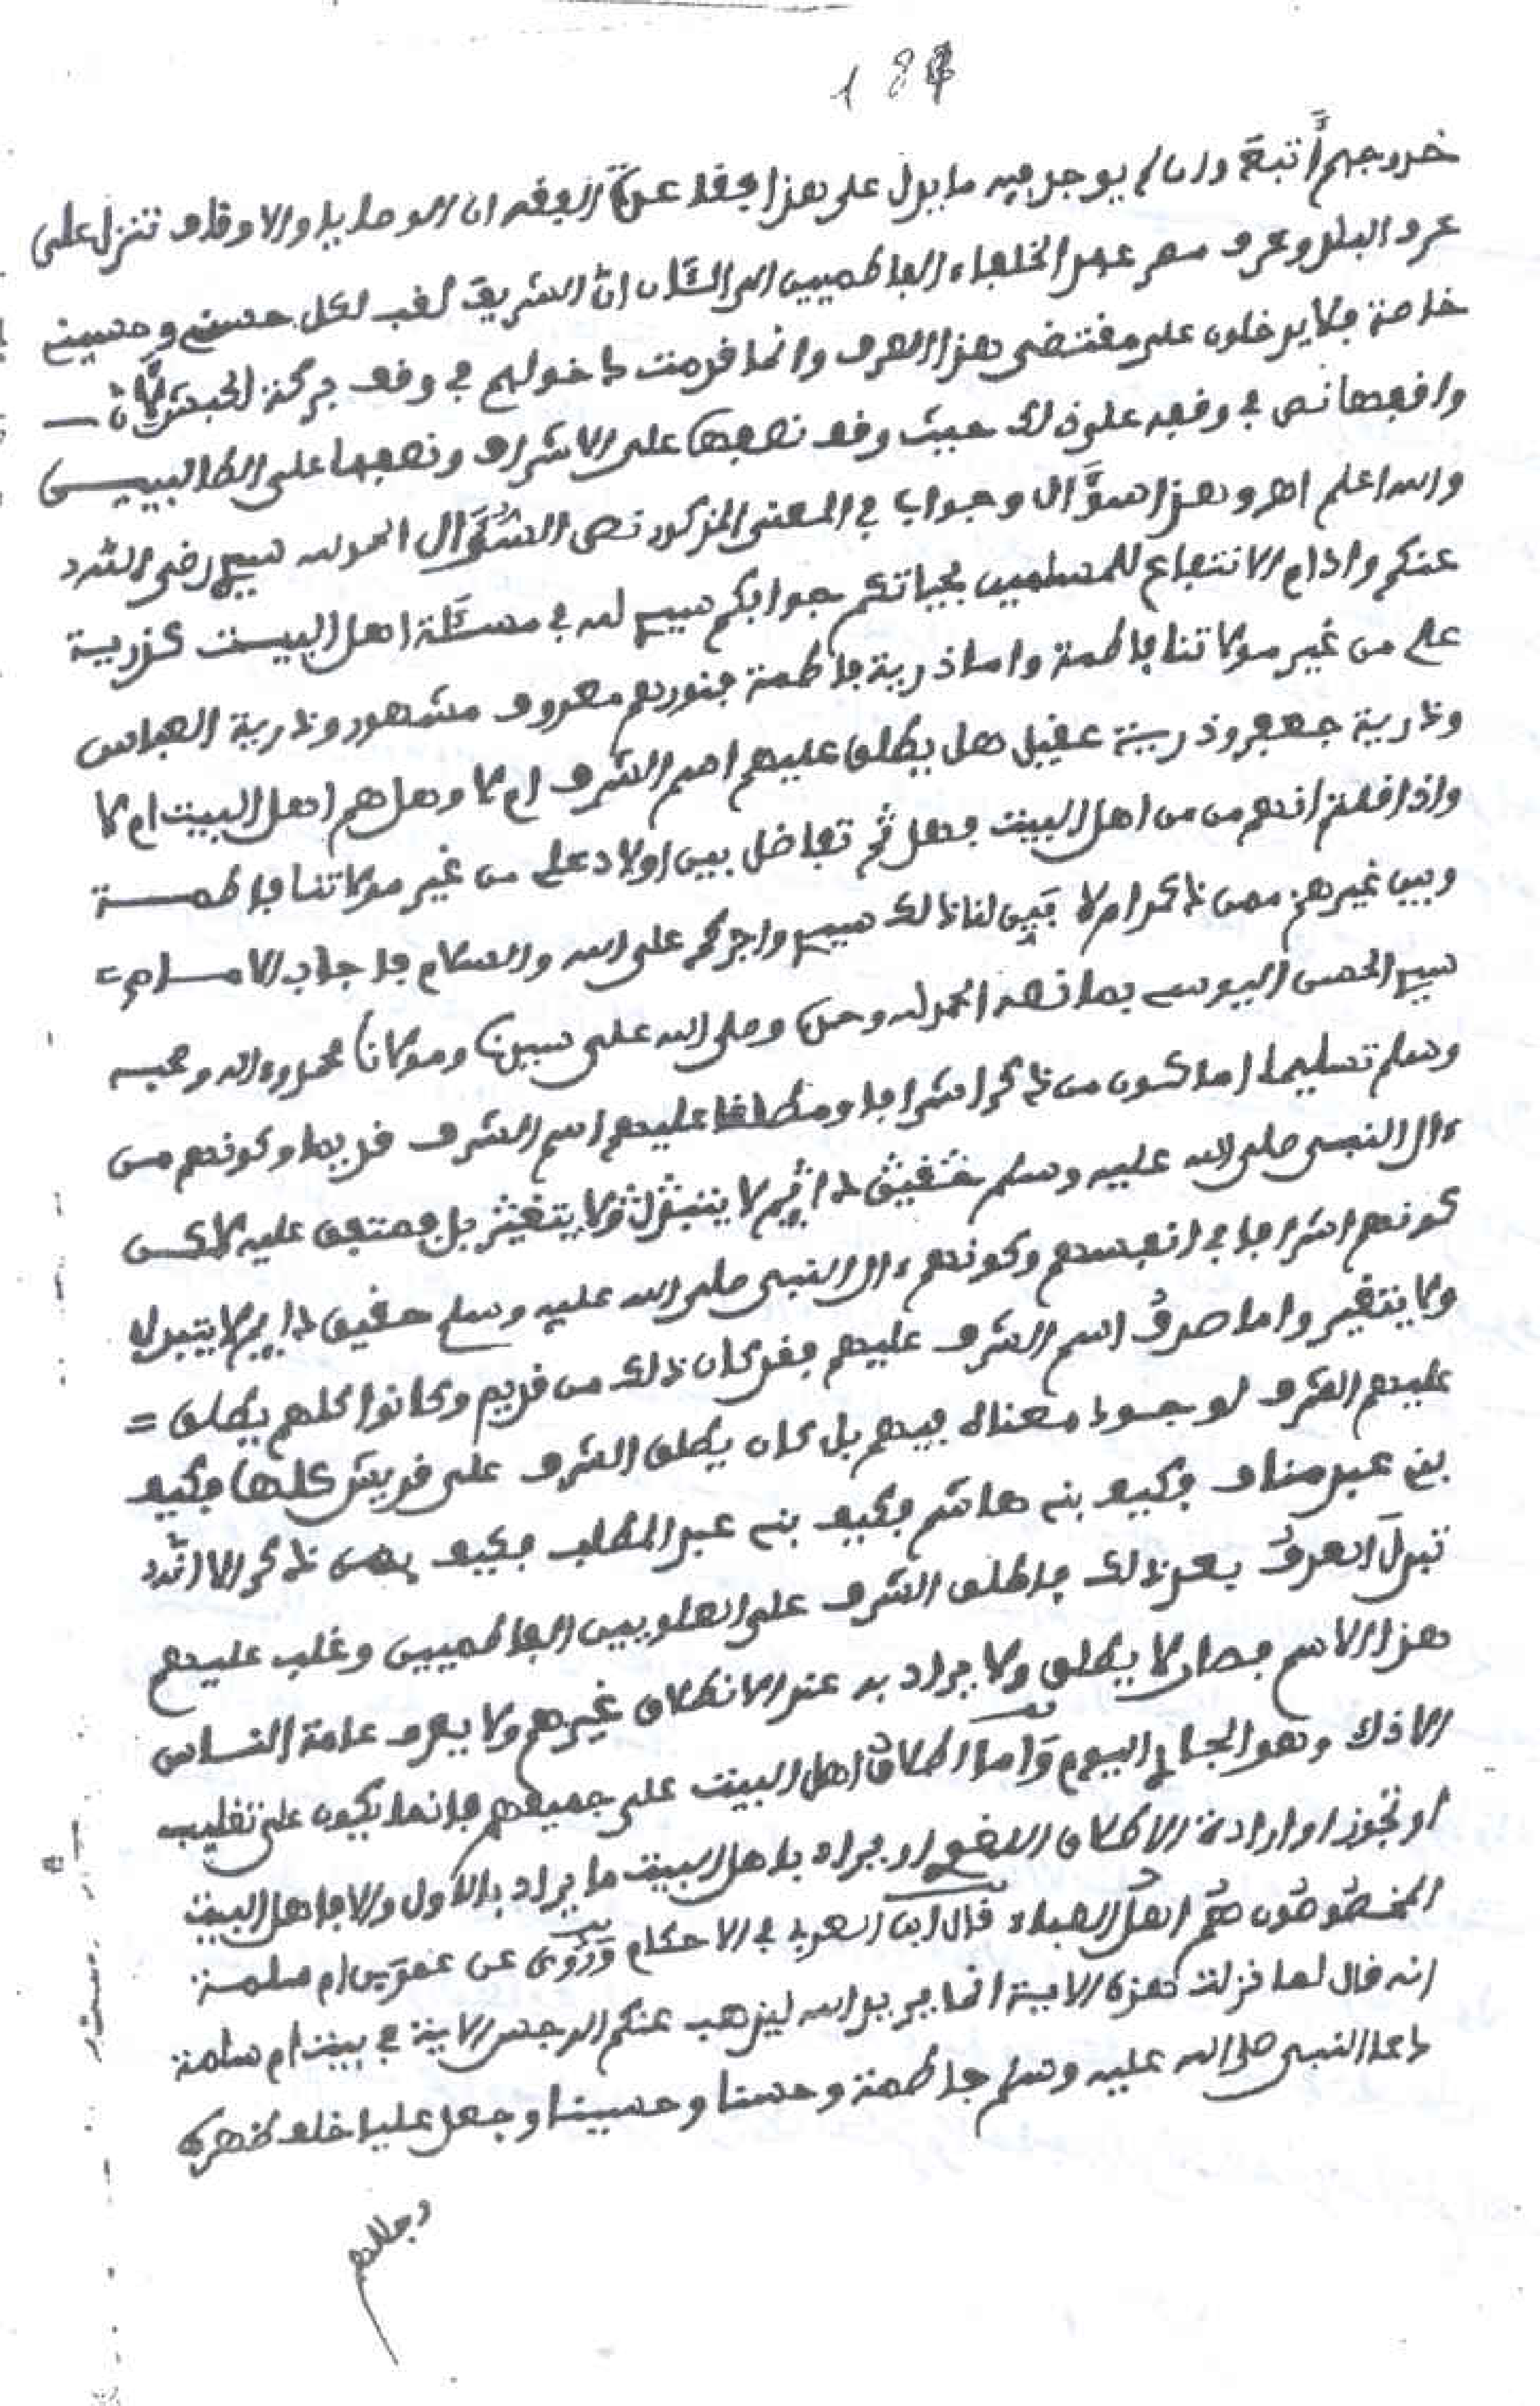 187
خروجهم اتبع وان لم يوجد فيه ما يدل على هذا فقاعدة الفقه ان الوصايا والاوقاف تنزل على
عرف البلد وعرف مصر عهد الخلفاء الفاطميين الى الآن ان الشريف لقب لكل حسني وحسيني
خاصة فلا يدخلون على مقتضى هذا العرف وانما قدمت دخولهم في وقف بركة الحبش لان
واقفها نص في وقفه على ذلك حيث وقف نصفها على الاشراف ونصفها على الطالبيين
والله اعلم اهـ وهذا سؤال وجواب في المعنى المذكور نص السؤال الحمد لله سيدي رضي الله
عنكم وادام الانتفاع للمسلمين بحياتكم جوابكم سيدي لله في مسئلة اهل البيت كذرية
علي من غير مولاتنا فاطمة واما ذرية فاطمة فنورهم معروف مشهور وذرية العباس
وذرية جعفر وذرية عقيل هل يطلق عليهم اسم الشرف ام لا وهل هم اهل البيت ام لا
واذا قلتم انهم من من اهل البيت فهل ثم تفاضل بين اولاد علي من غير مولاتنا فاطمة
وبين غيرهم ممن ذكر ام لا بين لنا ذلك سيدي واجركم على الله والسلام فاجاب الامام =
سيدي الحسن اليوسي بما نصه الحمد لله وحده وصلى الله على سيدنا ومولانا محمد وءاله وصحبه
وسلم تسليما اما كون من ذكر اشرافا ومطلقا عليهم اسم الشرف قديما وكونهم من
ءال النبي صلى الله عليه وسلم فحقيق دائم لا يتبدل ولا يتغير بل متفق عليه لاكن
كونهم اشرافا في انفسهم وكونهم ءال النبي صلى الله عليه وسلم حقيق دايم لا يتبدل
ولا يتغير واما صدق اسم الشرف عليهم فقد كان ذلك من قديم وكانوا كلهم يطلق =
عليهم الشرف لوجود معناه فيهم بل كان يطلق الشرف على قريش كلها فكيف
بني عبد مناف فكيف بني هاشم فكيف بني عبد المطلب فكيف بمن ذكر الا انه
تبدل العرف بعد ذلك فاطلق الشرف على العلويين الفاطميين وغلب عليهم
هذا الاسم فصار لا يطلق ولا يراد به عند الاطلاق غيرهم ولا يعرف عامة الناس
الا ذلك وهو الجاري اليوم واما اطلاق اهل البيت على جميعهم فانما يكون على تغليب
او تجوز او ارادة الاطلاق اللغوي او يراد باهل البيت ما يراد بالاول والا فاهل البيت
المخصوصون هم اهل العباء قال ابن العربي في الاحكام وروي عن عمر بن ام سلمة
انه قال لما نزلت هذه الاية انما يريد الله ليذهب عنكم الرجس الاية في بيت ام سلمة
دعا النبي صلى الله عليه وسلم فاطمة وحسنا وحسينا وجعل عليا خلف ظهره
وجللهم